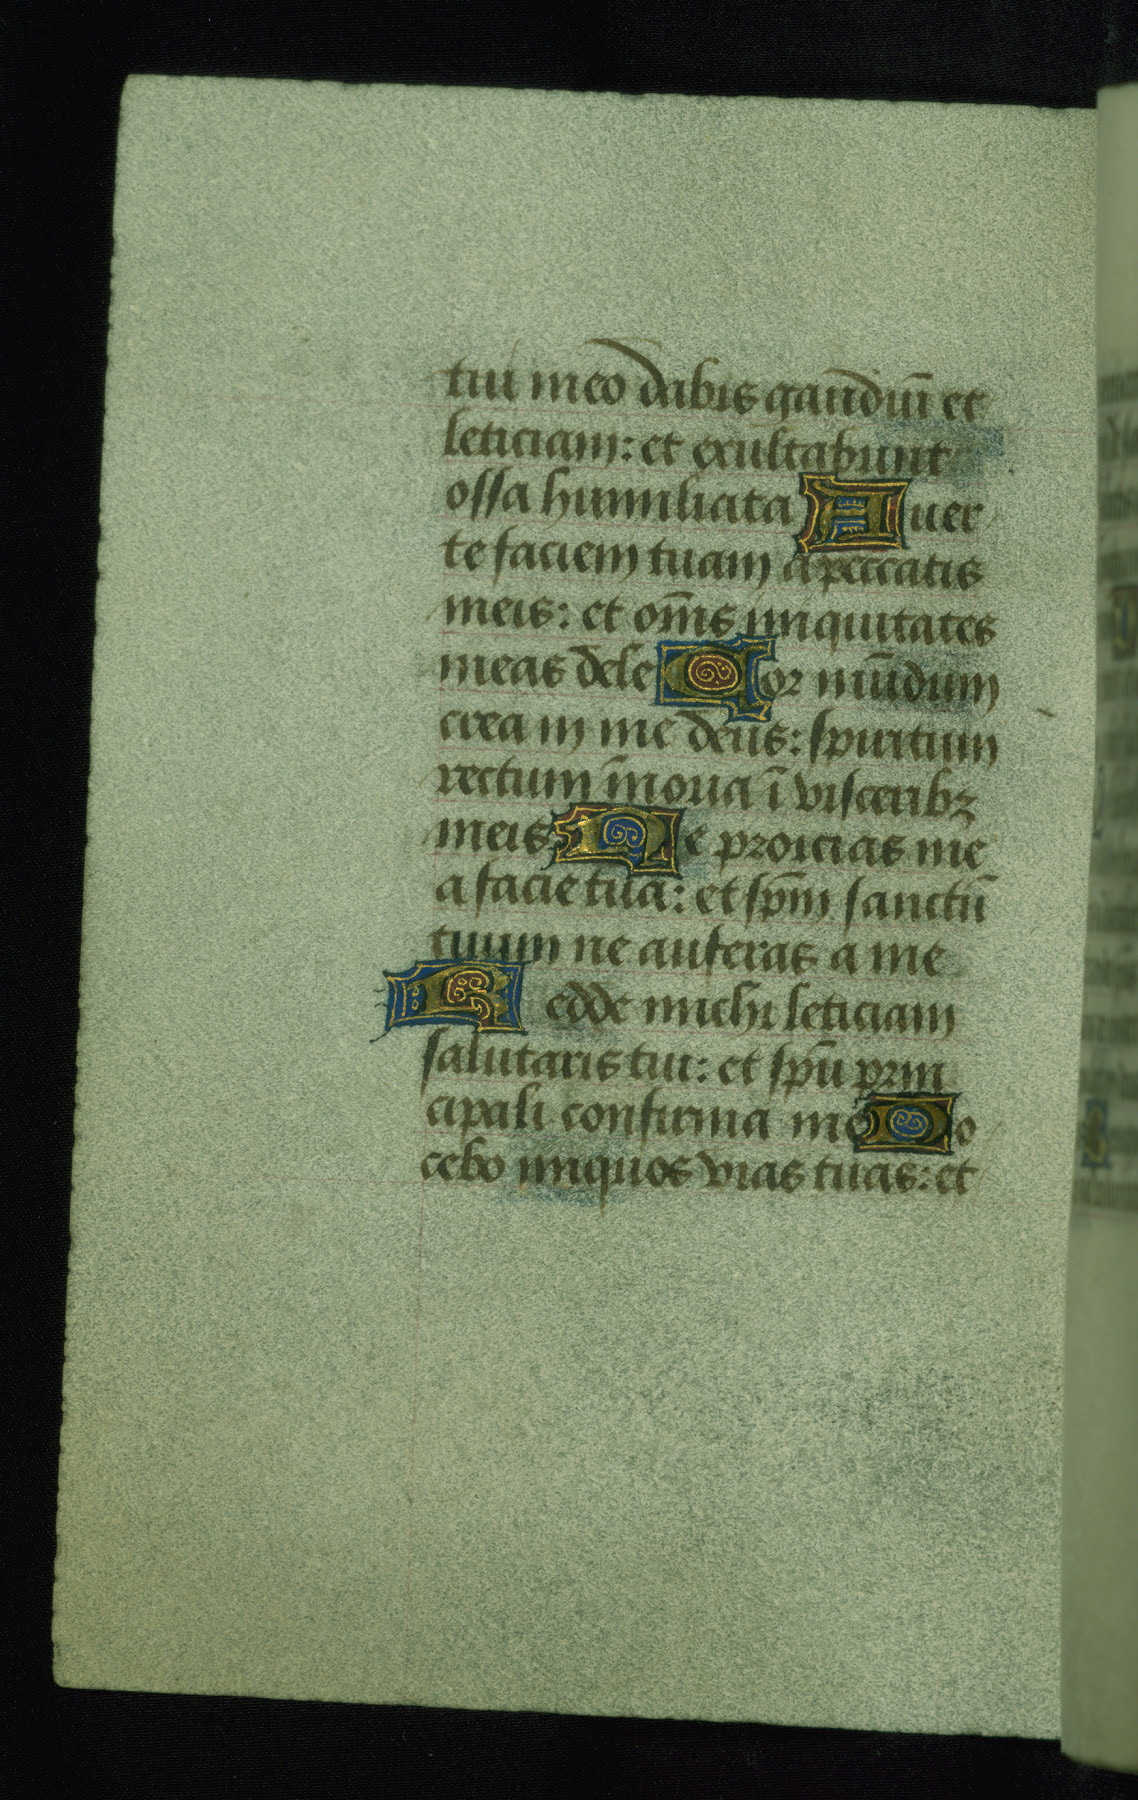 tui meo dabis gaudiū et
leticiam: et exultabunt
ossa humiliata Auer
te faciem tuam a peccatis
meis: et om̄s iniquitates
meas dele Cor mūdum
crea in me deus: spiritum
rectum īnoua ī visceribꝫ
meis Ne proicias me
a facie tua: et sp̄m sanctū
tuum ne auferas a me
Redde michi leticiam
salutaris tui: et sp̄u prin
cipali confirma me Do
cebo iniquos vias tuas: et